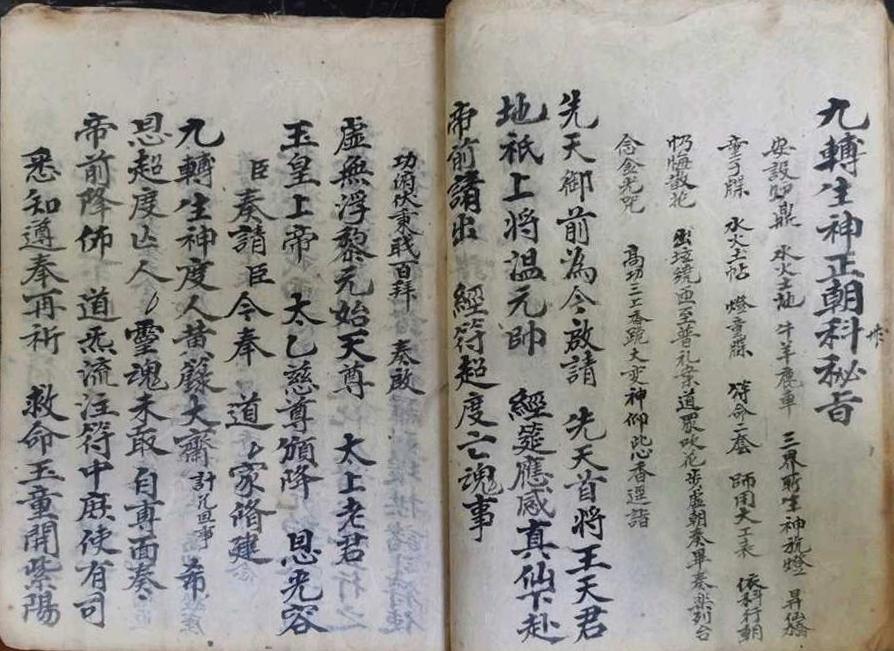 九轉生神正朝科秘旨
安設 鼎 水火土池 牛羊鹿車 三界 生神 燈 昇仙橋
童子牒 水火土帖 燈 牒 符命二套 師用大工表 依科行朝
懺悔散花 出壇繞 至普礼案道眾吹花步虛朝奏畢奏樂列台
念金光咒 高功三上香跪大变神仰此心香逕詣
先天御前為今啟請 先天首將王天君
地祇上將溫元帥 經筵應感真仙下赴
帝前請出 經符超度亡魂事
功 伏秉職百拜 奏啟
虛無浮黎元始天尊 太上老君
玉皇上帝 太乙慈尊頒降 恩光容
臣奏請臣今奉 道家脩建
九轉生神度人黃籙大齋計 旦事 希
恩超度亡人 靈魂未敢自專面奏
帝前降佈 道炁流注符中庶使有司
悉知遵奉再祈 救命玉童開紫陽